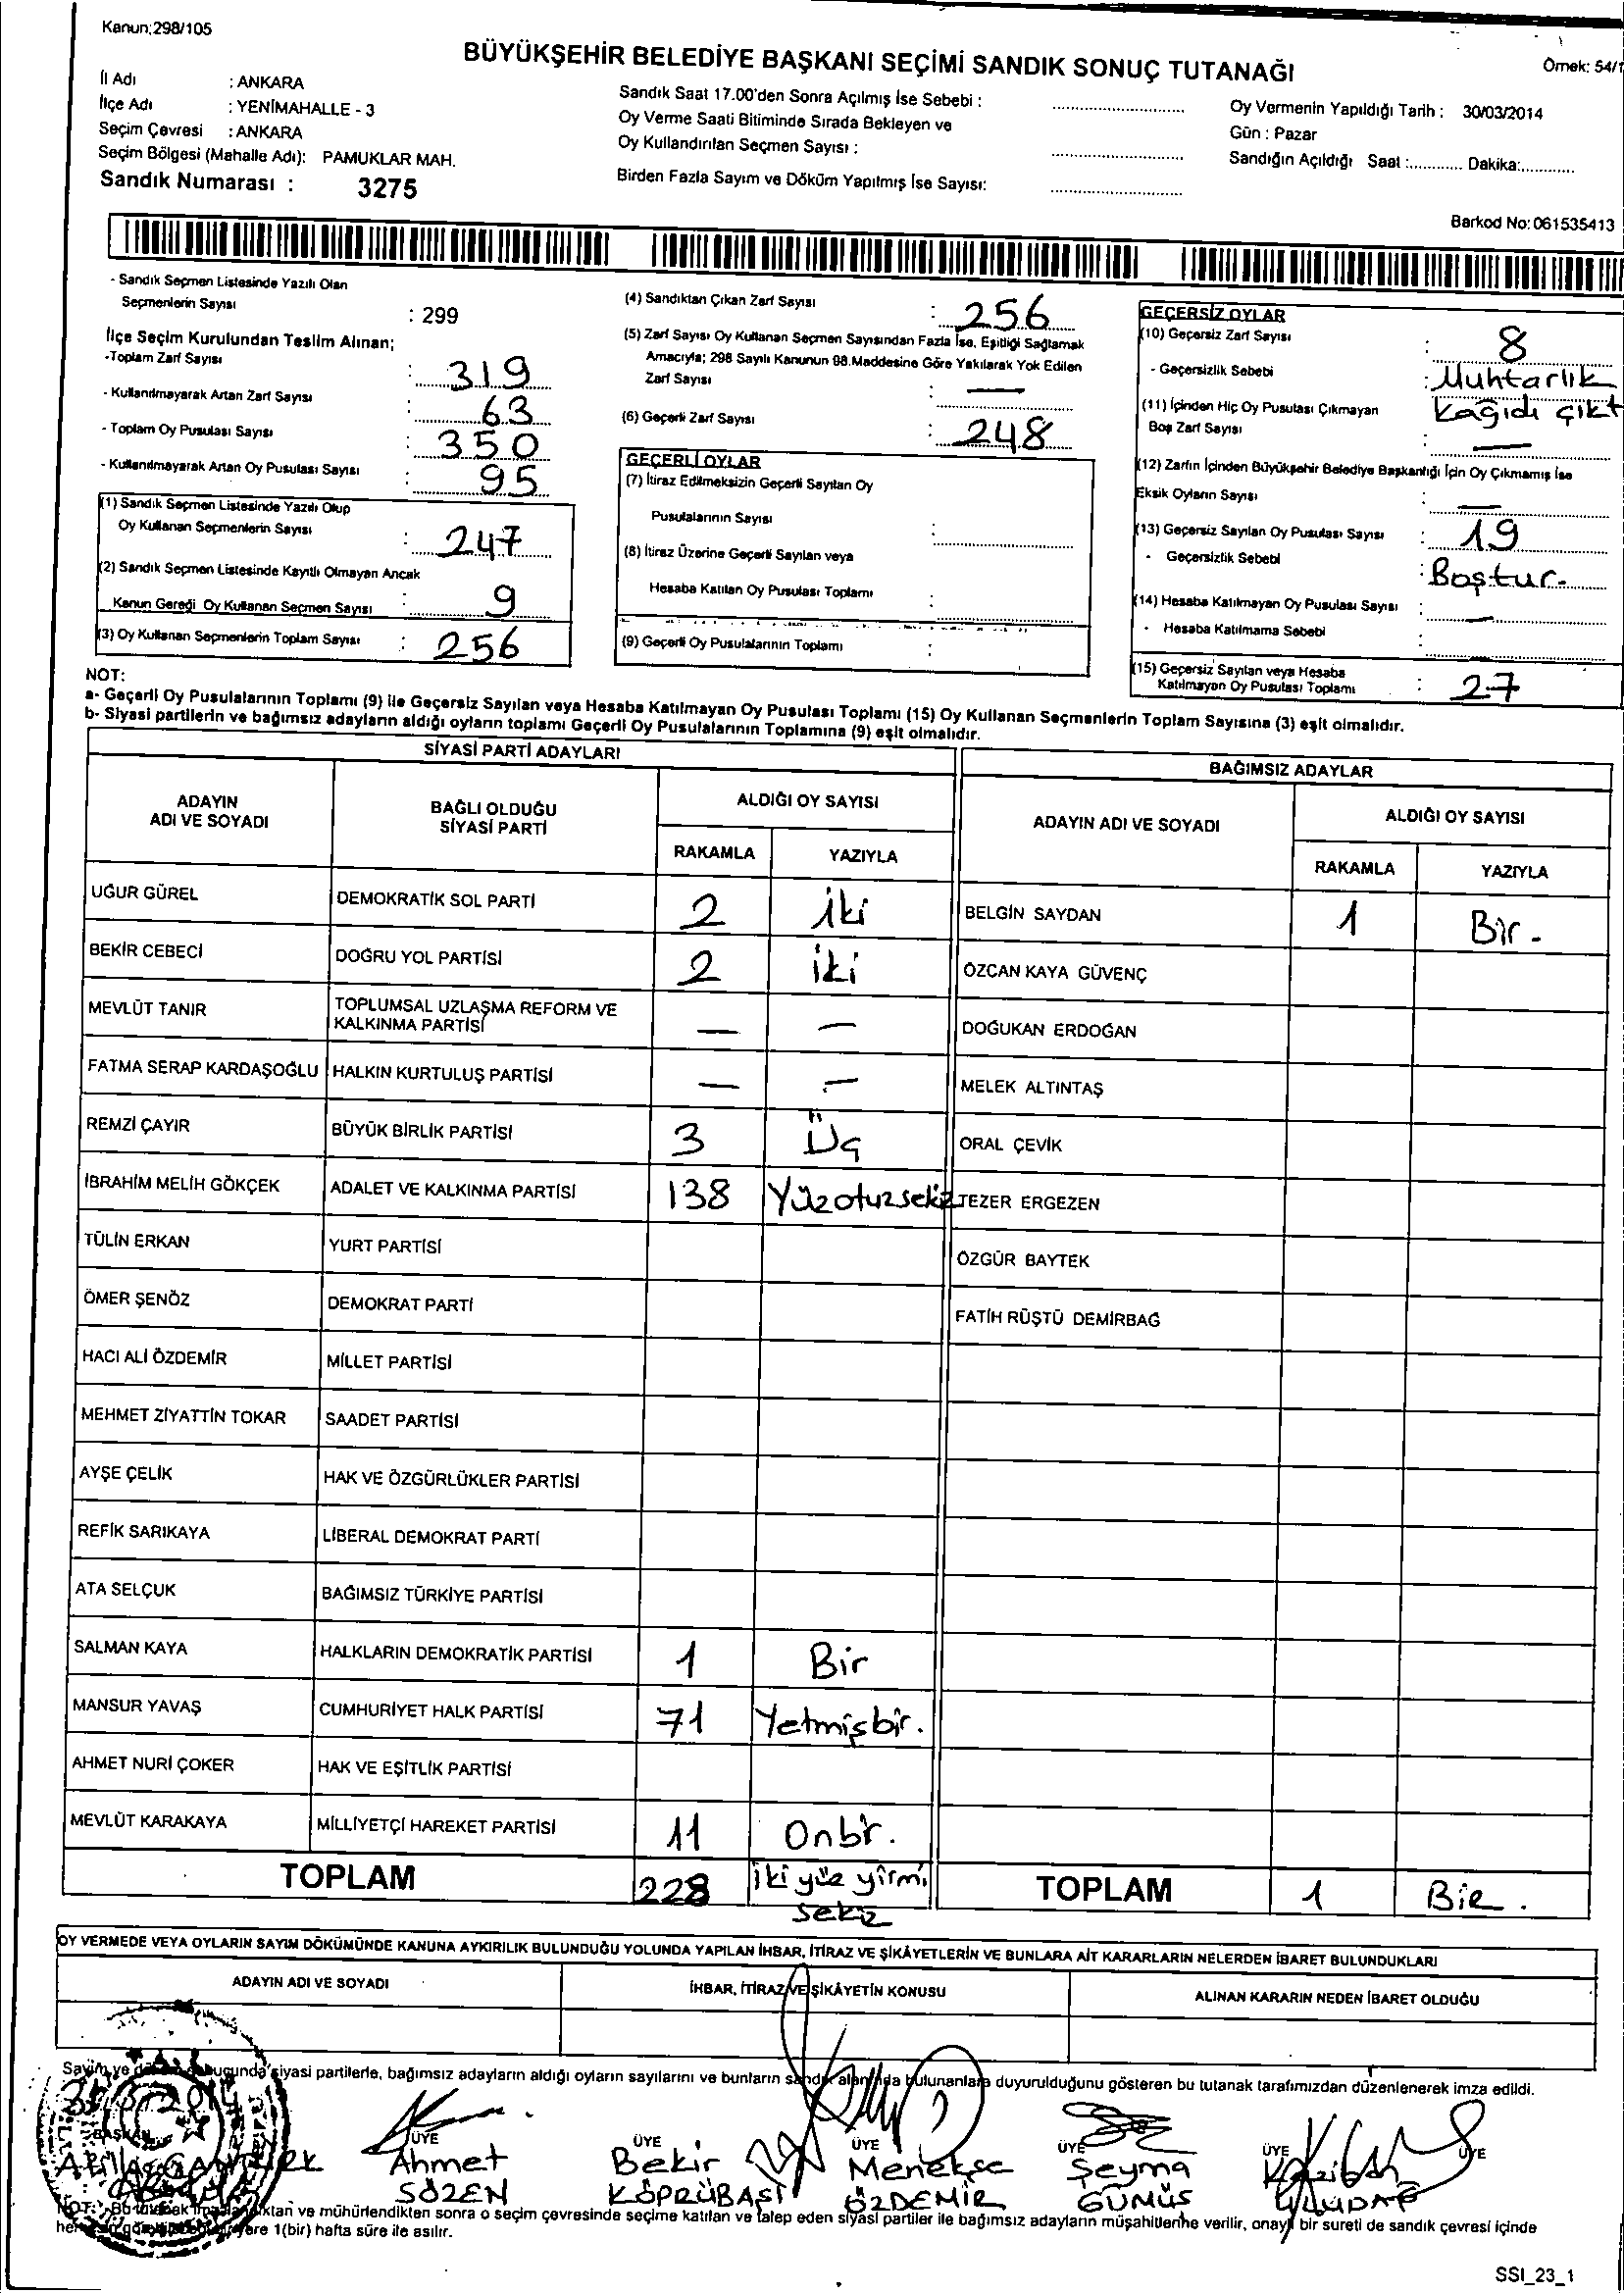 Kanun;298/105
BÜYÜKŞEHİR BELEDİYE BAŞKANI SEÇİMİ SANDIK SONUÇ TUTANAĞI
Örnek: 54/1
İl Adı : ANKARA
İlçe Adı : YENİMAHALLE - 3
Seçim Çevresi : ANKARA
Seçim Bölgesi (Mahalle Adı): PAMUKLAR MAH.
Sandık Numarası : 3275
Sandık Saat 17.00'den Sonra Açılmış İse Sebebi :
Oy Verme Saati Bitiminde Sırada Bekleyen ve
Oy Kullandırılan Seçmen Sayısı :
Birden Fazla Sayım ve Döküm Yapılmış İse Sayısı:
Oy Vermenin Yapıldığı Tarih : 30/03/2014
Gün : Pazar
Sandığın Açıldığı Saat :............ Dakika:............
Barkod No: 061535413
- Sandık Seçmen Listesinde Yazılı Olan
Seçmenlerin Sayısı : 299
İlçe Seçim Kurulundan Teslim Alınan;
-Toplam Zarf Sayısı : 319
- Kullanılmayarak Artan Zarf Sayısı : 63
- Toplam Oy Pusulası Sayısı : 350
- Kullanılmayarak Artan Oy Pusulası Sayısı : 95
(1) Sandık Seçmen Listesinde Yazılı Olup
Oy Kullanan Seçmenlerin Sayısı : 247
(2) Sandık Seçmen Listesinde Kayıtlı Olmayan Ancak
Kanun Gereği Oy Kullanan Seçmen Sayısı : 9
(3) Oy Kullanan Seçmenlerin Toplam Sayısı : 256
(4) Sandıktan Çıkan Zarf Sayısı : 256
(5) Zarf Sayısı Oy Kullanan Seçmen Sayısından Fazla İse, Eşitliği Sağlamak
Amacıyla; 298 Sayılı Kanunun 98.Maddesine Göre Yakılarak Yok Edilen
Zarf Sayısı : —
(6) Geçerli Zarf Sayısı : 248
GEÇERLİ OYLAR
(7) İtiraz Edilmeksizin Geçerli Sayılan Oy
Pusulalarının Sayısı :
(8) İtiraz Üzerine Geçerli Sayılan veya
Hesaba Katılan Oy Pusulası Toplamı :
(9) Geçerli Oy Pusulalarının Toplamı :
GEÇERSİZ OYLAR
(10) Geçersiz Zarf Sayısı : 8
- Geçersizlik Sebebi : Muhtarlık
Kağıdı çıkt
(11) İçinden Hiç Oy Pusulası Çıkmayan
Boş Zarf Sayısı : —
(12) Zarfın İçinden Büyükşehir Belediye Başkanlığı İçin Oy Çıkmamış İse
Eksik Oyların Sayısı : —
(13) Geçersiz Sayılan Oy Pusulası Sayısı : 19
- Geçersizlik Sebebi : Boştur.
(14) Hesaba Katılmayan Oy Pusulası Sayısı : —
- Hesaba Katılmama Sebebi :
(15) Geçersiz Sayılan veya Hesaba
Katılmayan Oy Pusulası Toplamı : 27
NOT:
a- Geçerli Oy Pusulalarının Toplamı (9) ile Geçersiz Sayılan veya Hesaba Katılmayan Oy Pusulası Toplamı (15) Oy Kullanan Seçmenlerin Toplam Sayısına (3) eşit olmalıdır.
b- Siyasi partilerin ve bağımsız adayların aldığı oyların toplamı Geçerli Oy Pusulalarının Toplamına (9) eşit olmalıdır.
SİYASİ PARTİ ADAYLARI
ADAYIN ADI VE SOYADI
BAĞLI OLDUĞU SİYASİ PARTİ
ALDIĞI OY SAYISI
RAKAMLA YAZIYLA
UĞUR GÜREL DEMOKRATİK SOL PARTİ 2 iki
BEKİR CEBECİ DOĞRU YOL PARTİSİ 2 iki
MEVLÜT TANIR TOPLUMSAL UZLAŞMA REFORM VE KALKINMA PARTİSİ — —
FATMA SERAP KARDAŞOĞLU HALKIN KURTULUŞ PARTİSİ — —
REMZİ ÇAYIR BÜYÜK BİRLİK PARTİSİ 3 Üç
İBRAHİM MELİH GÖKÇEK ADALET VE KALKINMA PARTİSİ 138 Yüzotuzsekiz
TÜLİN ERKAN YURT PARTİSİ
ÖMER ŞENÖZ DEMOKRAT PARTİ
HACI ALİ ÖZDEMİR MİLLET PARTİSİ
MEHMET ZİYATTİN TOKAR SAADET PARTİSİ
AYŞE ÇELİK HAK VE ÖZGÜRLÜKLER PARTİSİ
REFİK SARIKAYA LİBERAL DEMOKRAT PARTİ
ATA SELÇUK BAĞIMSIZ TÜRKİYE PARTİSİ
SALMAN KAYA HALKLARIN DEMOKRATİK PARTİSİ 1 Bir
MANSUR YAVAŞ CUMHURİYET HALK PARTİSİ 71 Yetmişbir.
AHMET NURİ ÇOKER HAK VE EŞİTLİK PARTİSİ
MEVLÜT KARAKAYA MİLLİYETÇİ HAREKET PARTİSİ 11 Onbir.
TOPLAM 228 iki yüz yirmi sekiz
BAĞIMSIZ ADAYLAR
ADAYIN ADI VE SOYADI
ALDIĞI OY SAYISI
RAKAMLA YAZIYLA
BELGİN SAYDAN 1 Bir.
ÖZCAN KAYA GÜVENÇ
DOĞUKAN ERDOĞAN
MELEK ALTINTAŞ
ORAL ÇEVİK
TEZER ERGEZEN
ÖZGÜR BAYTEK
FATİH RÜŞTÜ DEMİRBAĞ
TOPLAM 1 Bir.
OY VERMEDE VEYA OYLARIN SAYIM DÖKÜMÜNDE KANUNA AYKIRILIK BULUNDUĞU YOLUNDA YAPILAN İHBAR, İTİRAZ VE ŞİKÂYETLERİN VE BUNLARA AİT KARARLARIN NELERDEN İBARET BULUNDUKLARI
ADAYIN ADI VE SOYADI
İHBAR, İTİRAZ VE ŞİKÂYETİN KONUSU
ALINAN KARARIN NEDEN İBARET OLDUĞU
Sayım ve siyasi partilerle, bağımsız adayların aldığı oyların sayılarını ve bunların sandık alanında bulunanlara duyurulduğunu gösteren bu tutanak tarafımızdan düzenlenerek imza edildi.
BAŞKAN
ÜYE Ahmet SÖZEN
ÜYE Bekir KÖPRÜBAŞI
ÜYE Menekşe ÖZDEMİR
ÜYE Şeyma GÜMÜŞ
ÜYE
ÜYE
NOT: Bu tutanak ve mühürlendikten sonra o seçim çevresinde seçime katılan ve talep eden siyasi partiler ile bağımsız adayların müşahitlerine verilir, onaylı bir sureti de sandık çevresi içinde
yere 1(bir) hafta süre ile asılır.
SSI_23_1